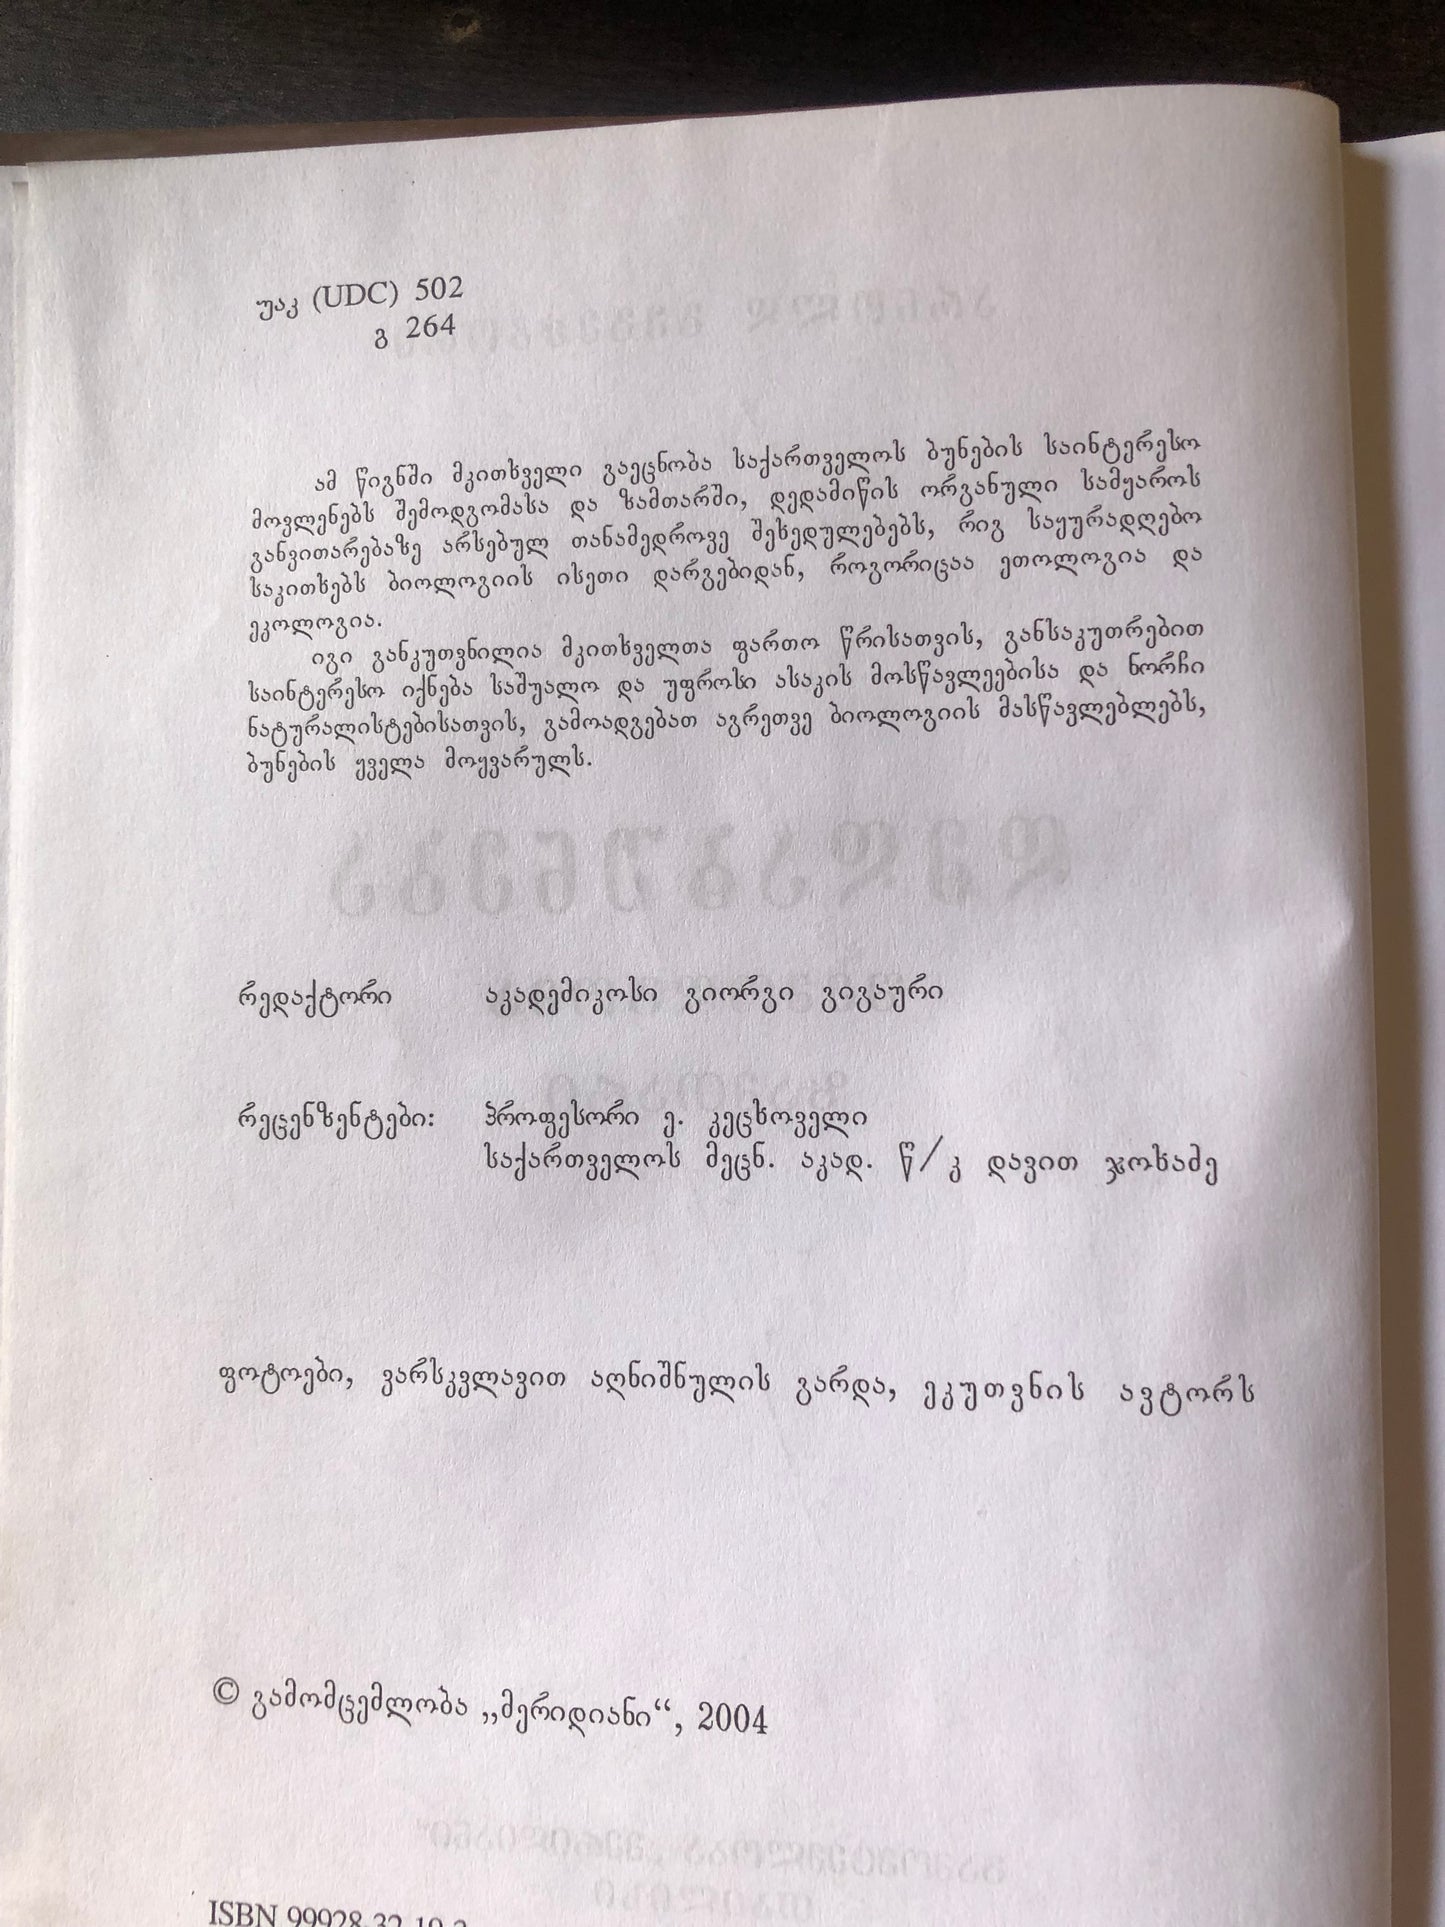 უაკ (UDC) 502
გ 264
ამ წიგნში მკითხველი გაეცნობა საქართველოს ბუნების საინტერესო
მოვლენებს შემოდგომასა და ზამთარში, დედამიწის ორგანული სამყაროს
განვითარებაზე არსებულ თანამედროვე შეხედულებებს, რიგ საყურადღებო
საკითხებს ბიოლოგიის ისეთი დარგებიდან, როგორიცაა ეთოლოგია და
ეკოლოგია.
იგი განკუთვნილია მკითხველთა ფართო წრისათვის, განსაკუთრებით
საინტერესო იქნება საშუალო და უფროსი ასაკის მოსწავლეებისა და ნორჩი
ნატურალისტებისათვის, გამოადგებათ აგრეთვე ბიოლოგიის მასწავლებლებს,
ბუნების ყველა მოყვარულს.
რედაქტორი აკადემიკოსი გიორგი გიგაური
რეცენზენტები: პროფესორი ე. კეცხოველი
საქართველოს მეცნ. აკად. წ/კ დავით ჯოხაძე
ფოტოები, ვარსკვლავით აღნიშნულის გარდა, ეკუთვნის ავტორს
© გამომცემლობა „მერიდიანი“, 2004
ISBN